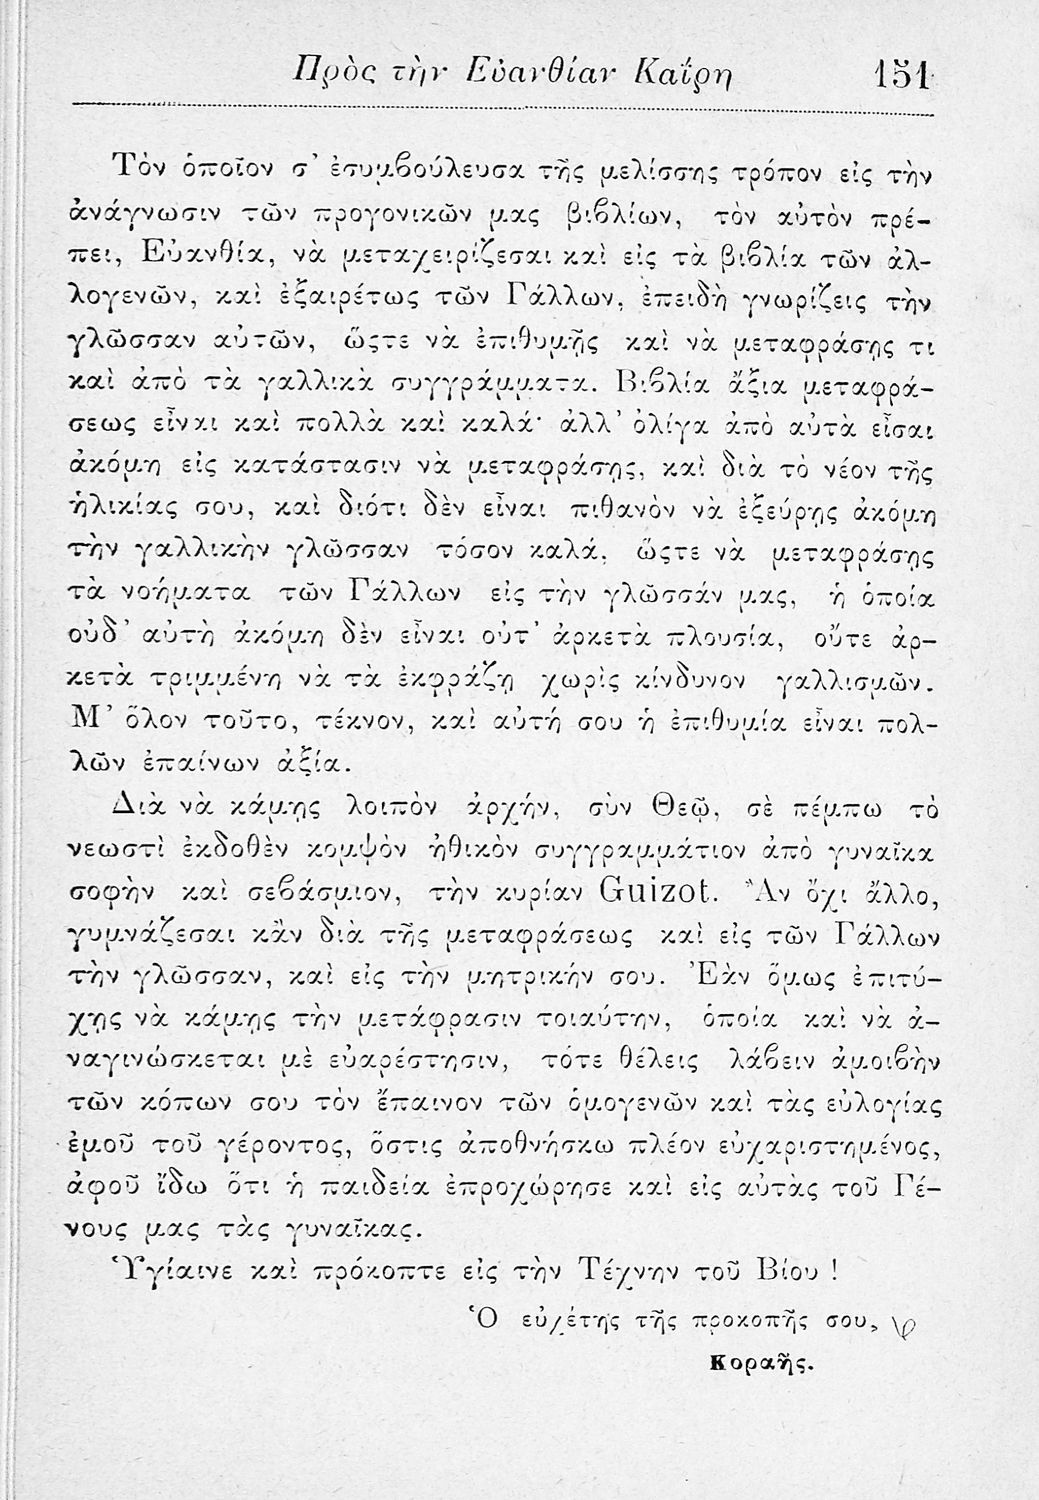 Πρὸς τὴν Εὐανθίαν Καΐρη 151
Τὸν ὁποῖον σ᾽ ἐσυμβούλευσα τῆς μελίσσης τρόπον εἰς τὴν
ἀνάγνωσιν τῶν προγονικῶν μας βιβλίων, τὸν αὐτὸν πρέ-
πει, Εὐανθία, νὰ μεταχειρίζεσαι καὶ εἰς τὰ βιβλία τῶν ἀλ-
λογενῶν, καὶ ἐξαιρέτως τῶν Γάλλων, ἐπειδὴ γνωρίζεις τὴν
γλῶσσαν αὐτῶν, ὥςτε νὰ ἐπιθυμῇς καὶ νὰ μεταφράσῃς τι
καὶ ἀπὸ τὰ γαλλικὰ συγγράμματα. Βιβλία ἄξια μεταφρά-
σεως εἶναι καὶ πολλὰ καὶ καλά· ἀλλ᾽ ὀλίγα ἀπὸ αὐτὰ εἶσαι
ἀκόμη εἰς κατάστασιν νὰ μεταφράσῃς, καὶ διὰ τὸ νέον τῆς
ἡλικίας σου, καὶ διότι δὲν εἶναι πιθανὸν νὰ ἐξεύρῃς ἀκόμη
τὴν γαλλικὴν γλῶσσαν τόσον καλά, ὥςτε νὰ μεταφράσῃς
τὰ νοήματα τῶν Γάλλων εἰς τὴν γλῶσσάν μας, ἡ ὁποία
οὐδ᾽ αὐτὴ ἀκόμη δὲν εἶναι οὐτ᾽ ἀρκετὰ πλουσία, οὔτε ἀρ-
κετὰ τριμμένη νὰ τὰ ἐκφράζῃ χωρὶς κίνδυνον γαλλισμῶν.
Μ᾽ ὅλον τοῦτο, τέκνον, καὶ αὐτή σου ἡ ἐπιθυμία εἶναι πολ-
λῶν ἐπαίνων ἀξία.
Διὰ νὰ κάμῃς λοιπὸν ἀρχήν, σὺν Θεῷ, σὲ πέμπω τὸ
νεωστὶ ἐκδοθὲν κομψὸν ἠθικὸν συγγραμμάτιον ἀπὸ γυναῖκα
σοφὴν καὶ σεβάσμιον, τὴν κυρίαν Guizot. Ἂν ὄχι ἄλλο,
γυμνάζεσαι κἂν διὰ τῆς μεταφράσεως καὶ εἰς τῶν Γάλλων
τὴν γλῶσσαν, καὶ εἰς τὴν μητρικήν σου. Ἐὰν ὅμως ἐπιτύ-
χῃς νὰ κάμῃς τὴν μετάφρασιν τοιαύτην, ὁποία καὶ νὰ ἀ-
ναγινώσκεται μὲ εὐαρέστησιν, τότε θέλεις λάβειν ἀμοιβὴν
τῶν κόπων σου τὸν ἔπαινον τῶν ὁμογενῶν καὶ τὰς εὐλογίας
ἐμοῦ τοῦ γέροντος, ὅστις ἀποθνήσκω πλέον εὐχαριστημένος,
ἀφοῦ ἴδω ὅτι ἡ παιδεία ἐπροχώρησε καὶ εἰς αὐτὰς τοῦ Γέ-
νους μας τὰς γυναῖκας.
Ὑγίαινε καὶ πρόκοπτε εἰς τὴν Τέχνην τοῦ Βίου !
Ὁ εὐχέτης τῆς προκοπῆς σου,
Κοραῆς.